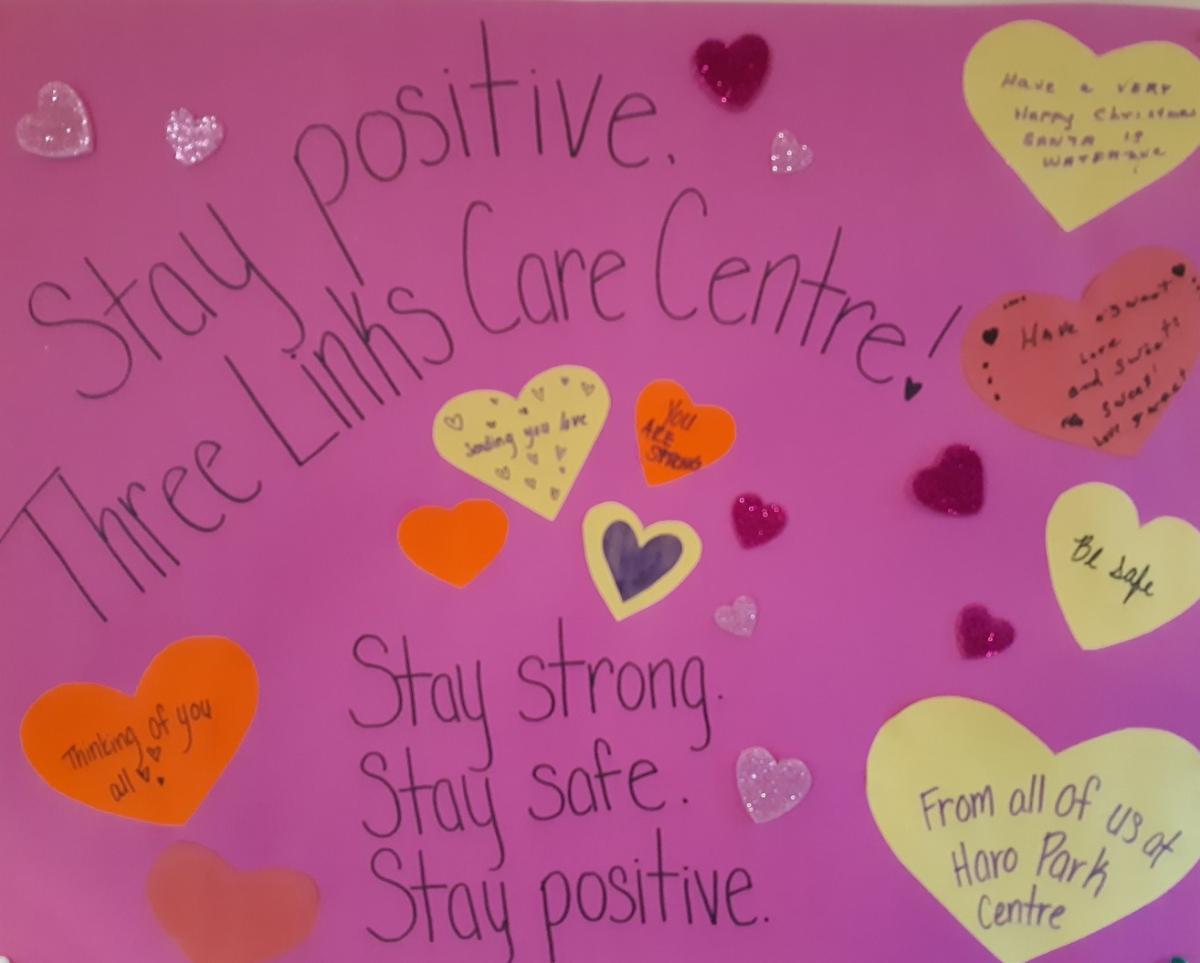 Stay positive.
Three Links Care Centre!
Have a VERY
Happy Christmas
SANTA IS
Sending you love
You
ARE
STRONG
HAVE
Love
and
Be safe
Thinking of you
all
Stay strong.
Stay safe.
Stay positive.
From all of us at
Haro Park
Centre